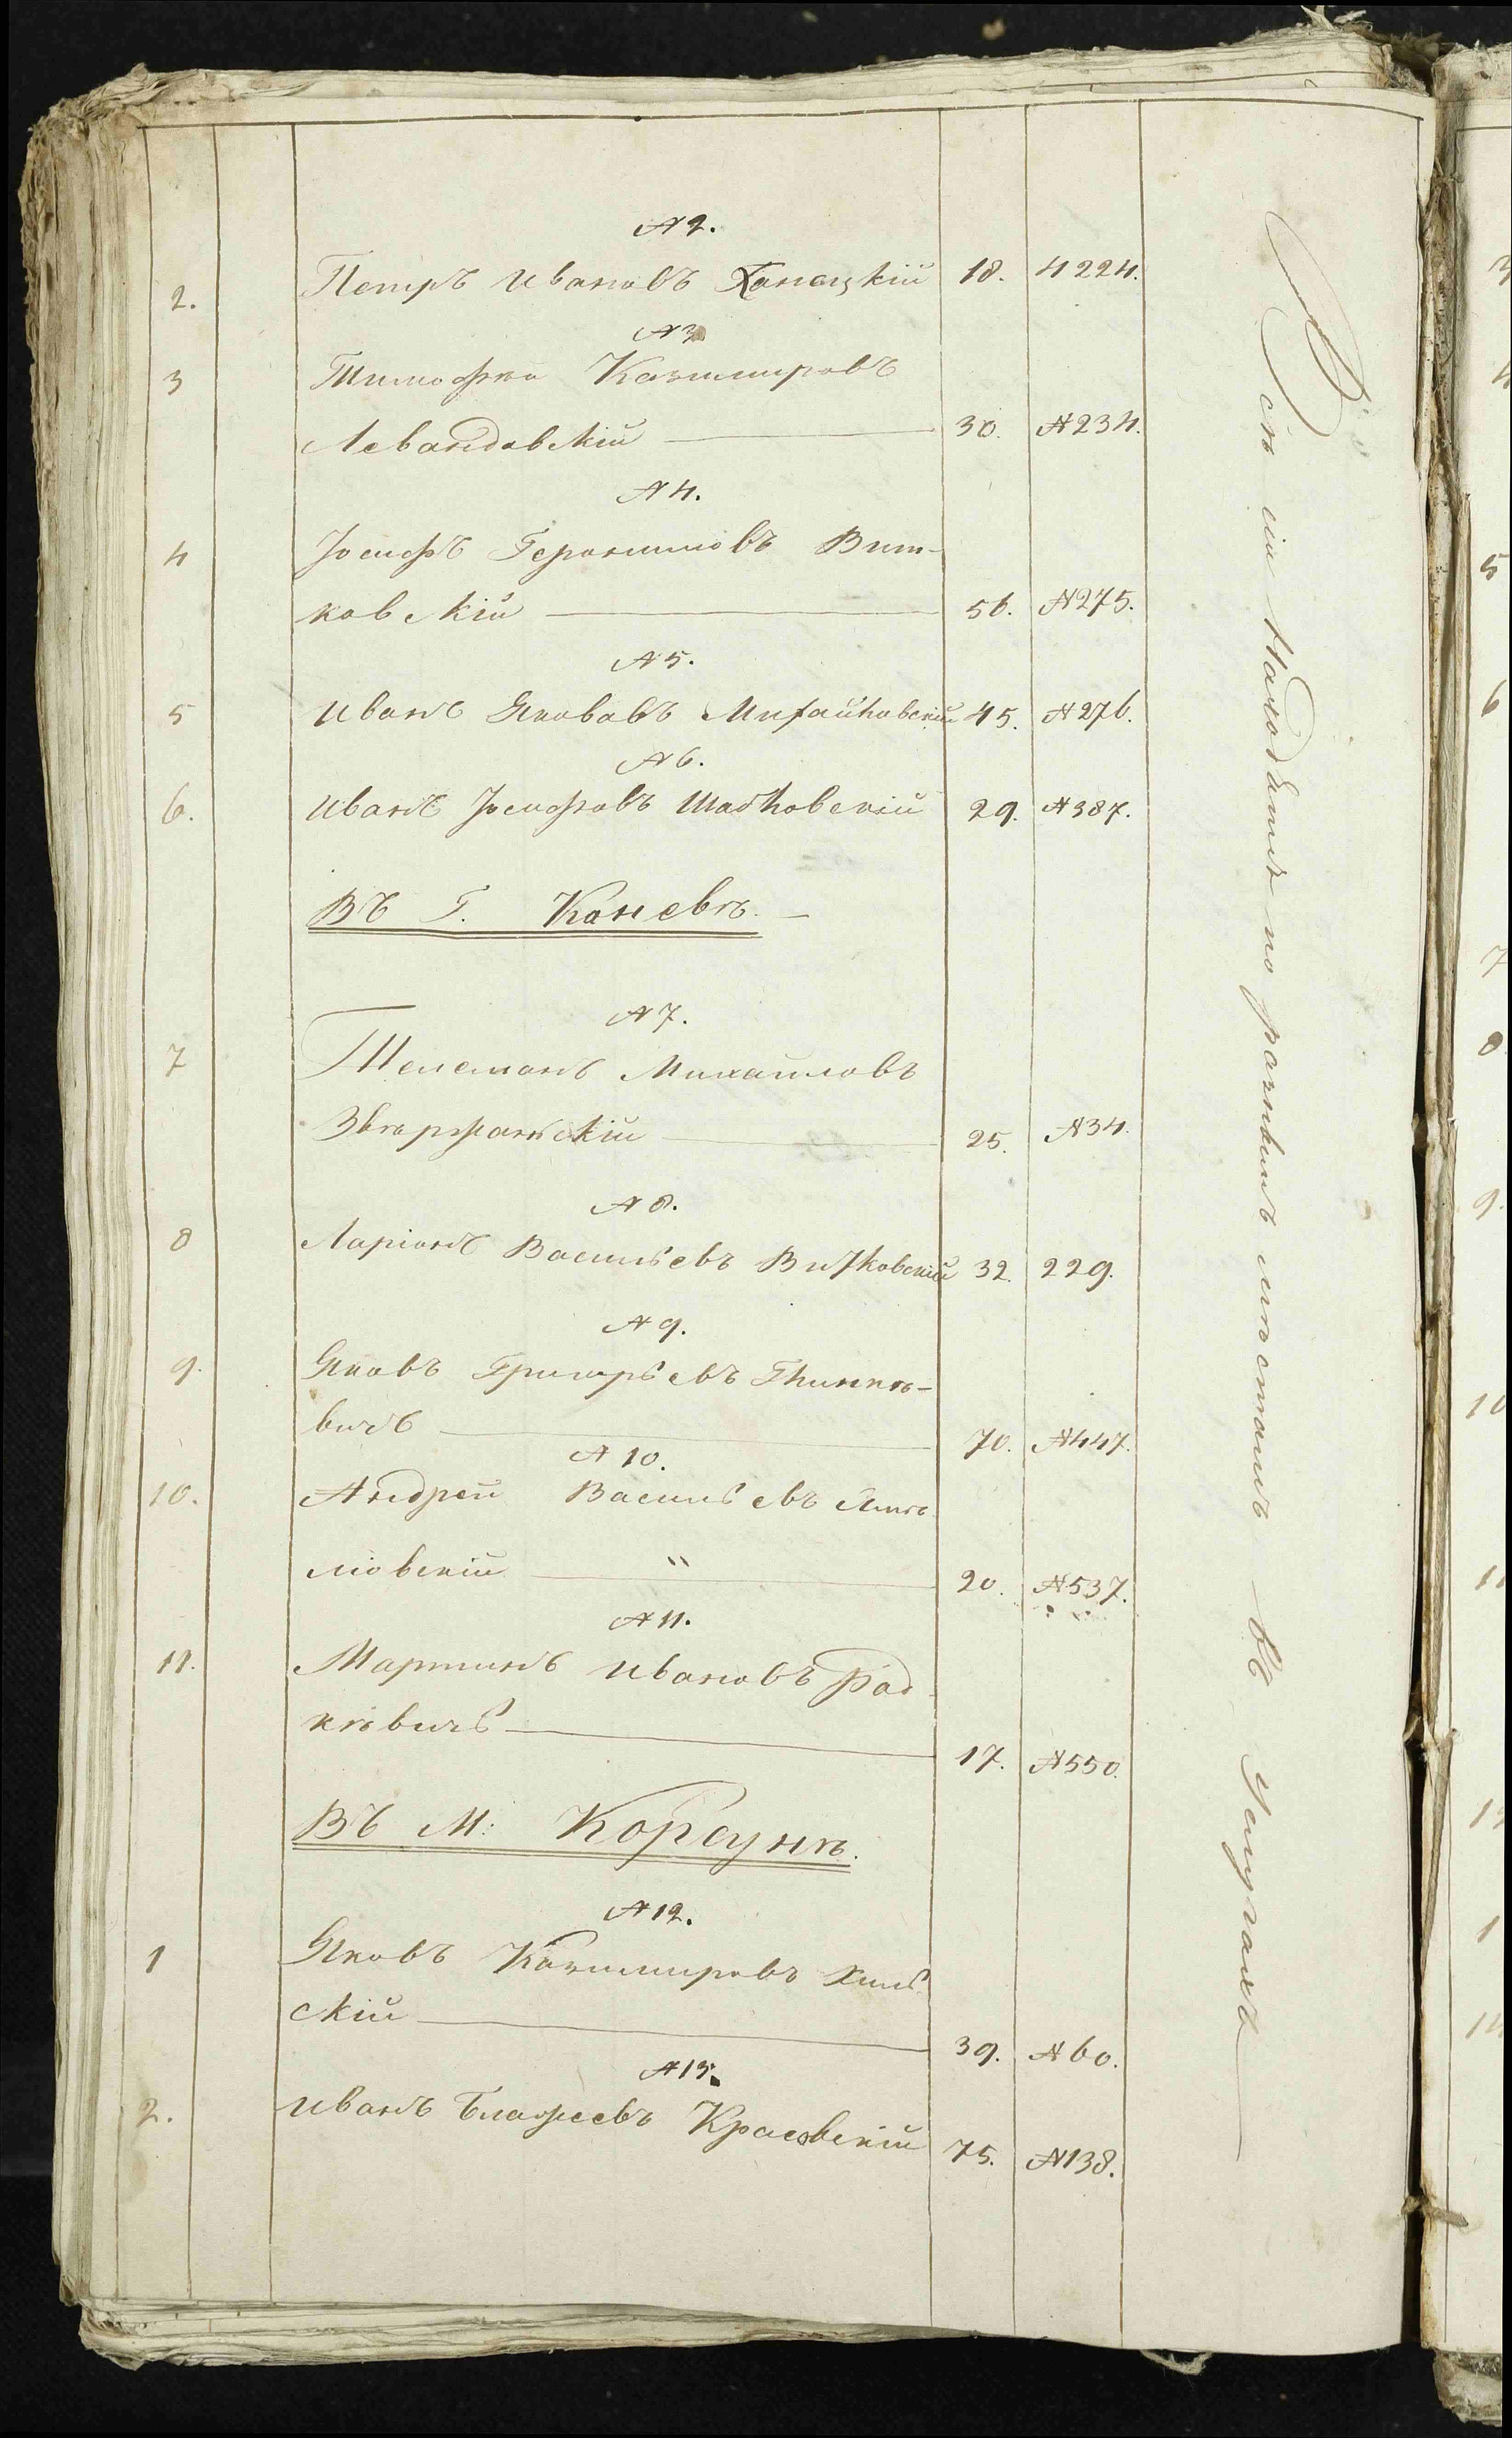 № 2.
2. Петръ Ивановъ Ханецкій 18. № 224.
№ 3
3 Тимофей Казимировъ
Левандовскій 30. № 234.
№ 4.
4 Іосифъ Геронимовъ Вит-
ковскій 56. № 275.
№ 5.
5 Иванъ Яковавъ Михайловскій 45. № 276.
№ 6.
6. Иванъ Іосифовъ Шабловскій 29. № 387.
Въ Г. Каневѣ.
№ 7.
7 Михайловъ
25. № 34.
№ 8.
8 Ларіонъ Васильевъ Витковскій 32. 229.
№ 9.
9. Яковъ Григорьевъ
вичъ 70. № 447.
№ 10.
10. Андрей Васильевъ
ловскій " 20. № 537.
№ 11.
11. Мартинъ Ивановъ Рад
кѣвичъ 17. № 550.
Въ М: Корсунѣ.
№ 12.
1 Яковъ Казимировъ Хиль
скій 39. № 60.
№ 13.
2. Иванъ Блажеевъ Красовскій 75. № 138.
Всѣ сіи находятся по разнымъ мѣстамъ въ